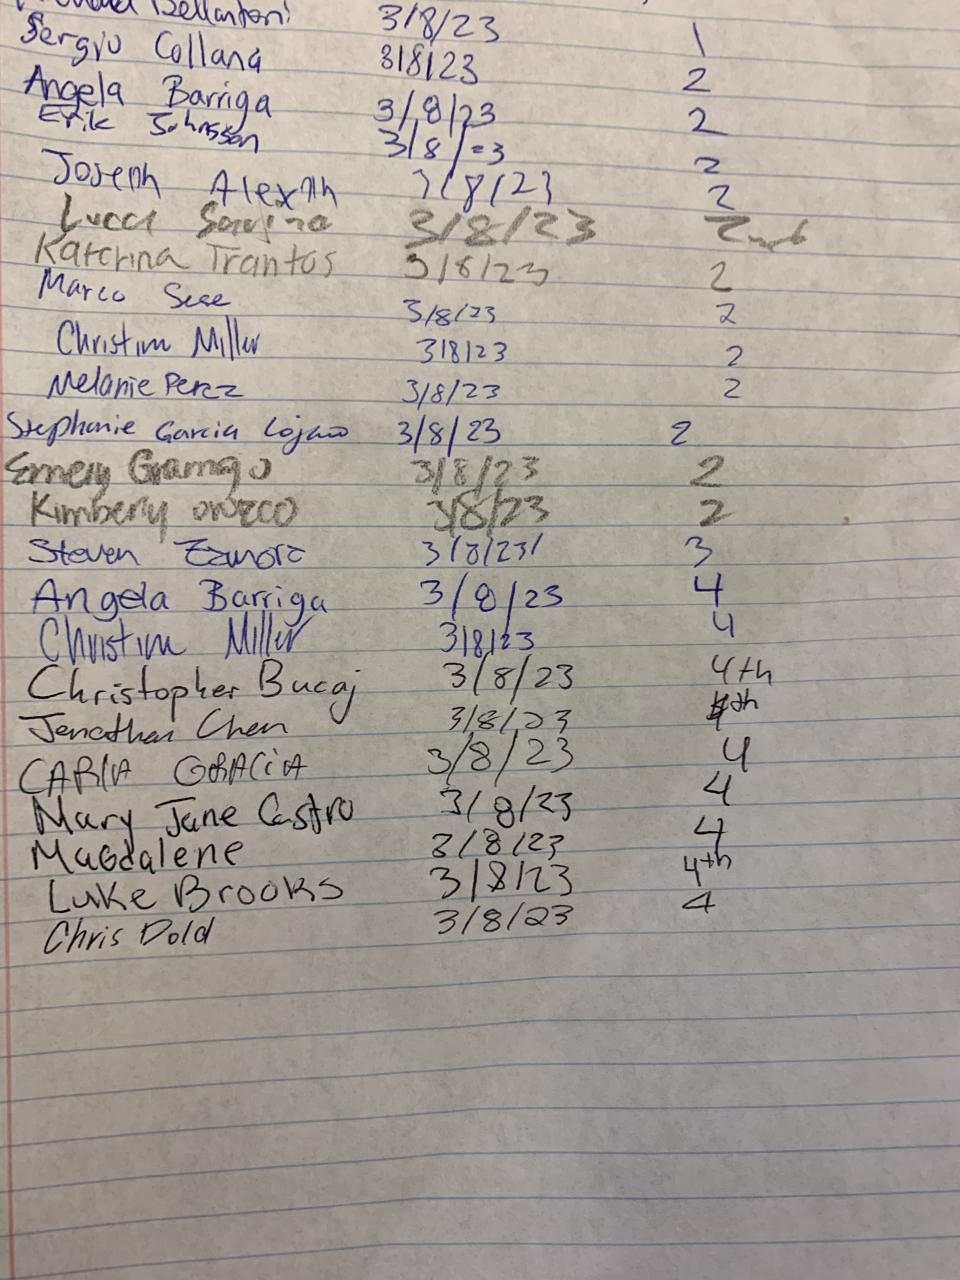 Dellantoni 3/8/23 1
Sergio Collana 3/8/23 2
Angela Barriga 3/8/23 2
Erik Johnsson 3/8/23 2
Joseph 3/8/23 2
Lucca 3/8/23
Katerina Trantos 3/8/23 2
Marco Sese 3/8/23 2
Christina Miller 3/8/23 2
Melanie Perez 3/8/23 2
Stephanie Garcia Lojano 3/8/23 2
Emery 3/8/23 2
Kimberly orozco 3/8/23 2
Steven Zamora 3/8/23/ 3
Angela Barriga 3/8/23 4
Christina Miller 3/8/23 4
Christopher Bucaj 3/8/23 4th
Jonathan Chen 3/8/23 4th
CARLA GRACIA 3/8/23 4
Mary Jane Castro 3/8/23 4
MaGdalene 3/8/23 4
Luke Brooks 3/8/23 4th
Chris Dold 3/8/23 4